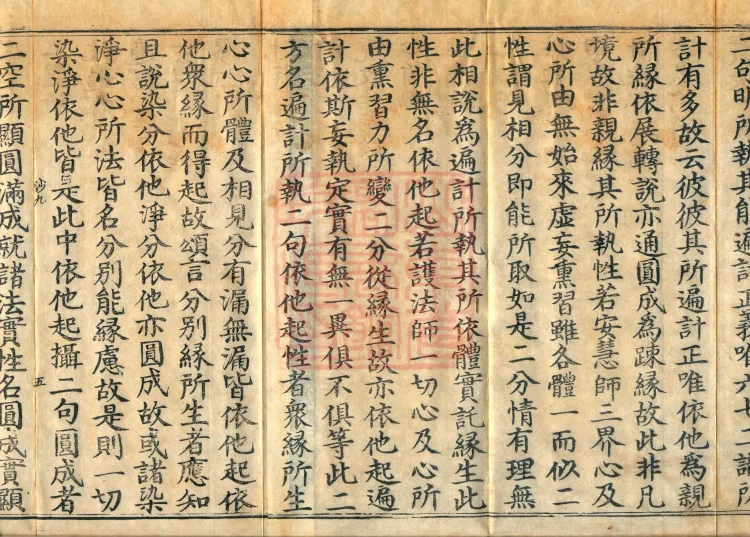 二句明所執其能遍計正義唯六七二識所
計有多故云彼彼其所遍計正唯依他爲親
所緣依展轉說亦通圓成爲踈緣故此非凡
境故非親緣其所執性若安慧師三界心及
心所由無始來虛妄熏習雖各體一而似二
性謂見相分即能所取如是二分情有理無
此相說爲遍計所執其所依體實託緣生此
性非無名依他起若護法師一切心及心所
由熏習力所變二分從緣生故亦依他起遍
計依斯妄執定實有無一異俱不俱等此二
方名遍計所執二句依他起性者衆緣所生
心心所體及相見分有漏無漏皆依他起依
他衆緣而得起故頌言分別緣所生者應知
且說染分依他淨分依他亦圓成故或諸染
淨心心所法皆名分別能緣慮故是則一切
染淨依他皆是此中依他起攝二句圓成者
沙九 五
二空所顯圓滿成就諸法實性名圓成實顯